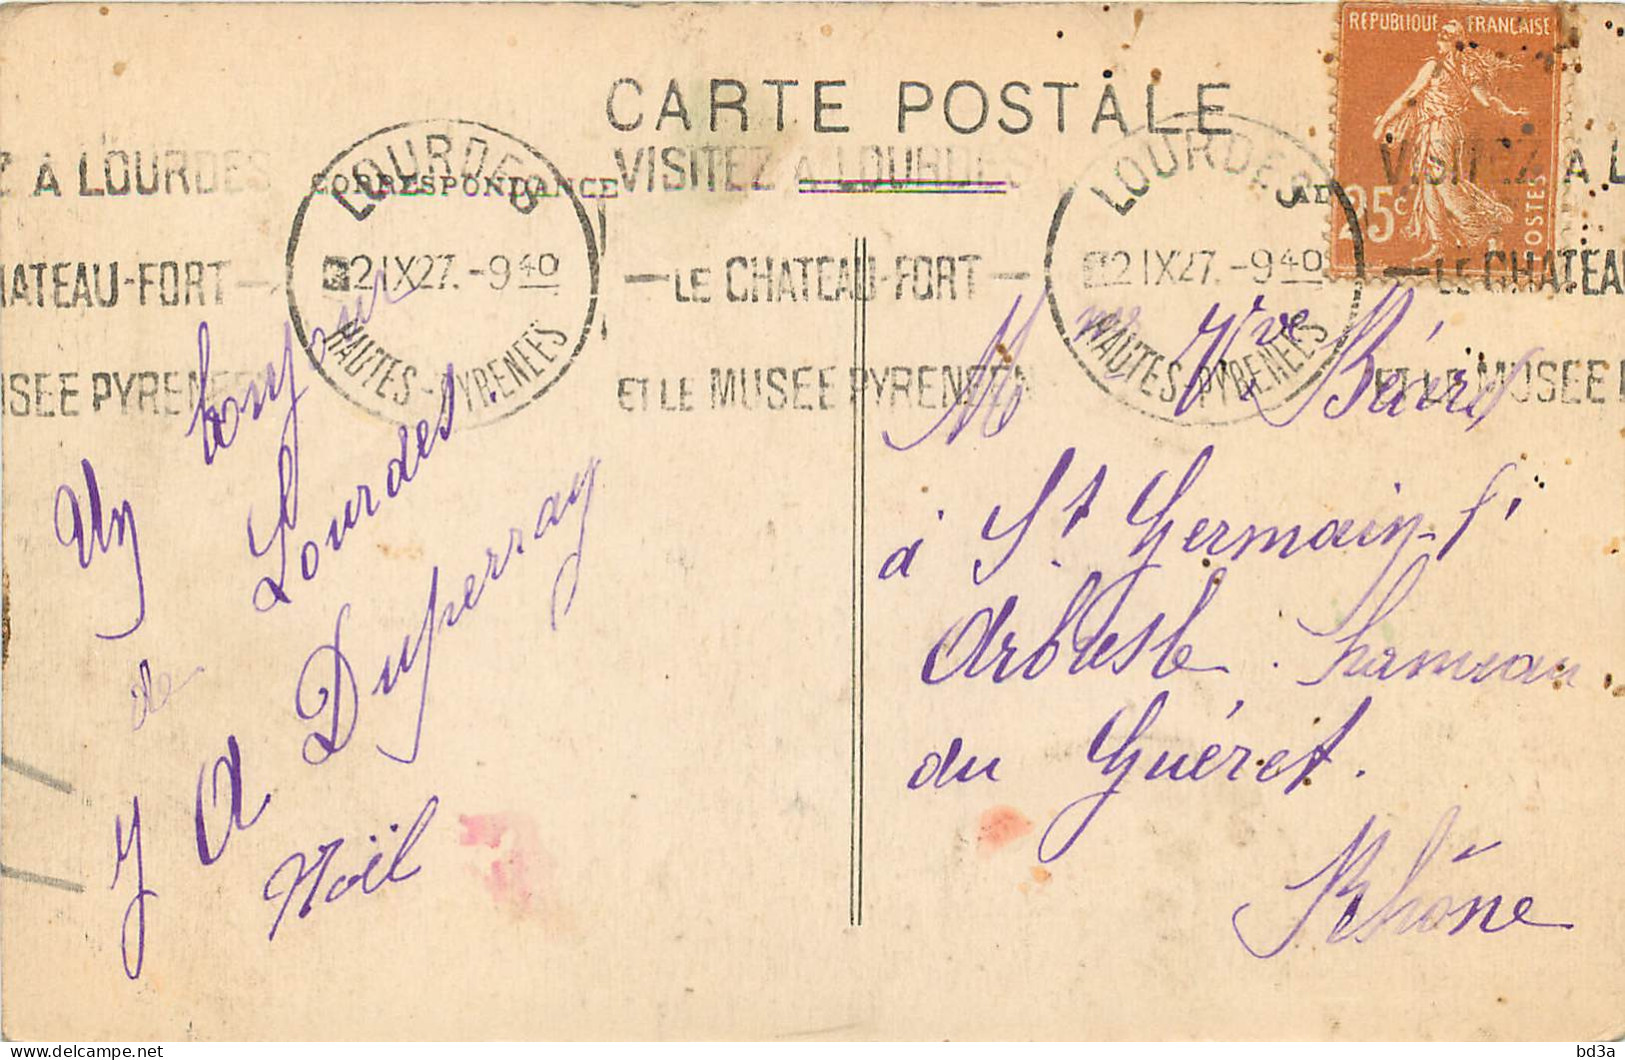 CARTE POSTALE
CORRESPONDANCE
RÉPUBLIQUE FRANÇAISE
25c POSTES
Z A LOURDES
HATEAU-FORT —
USEE PYRENEEN
LOURDES
2 IX 27. - 9 40
HAUTES-PYRENEES
VISITEZ A LOURDES
— LE CHATEAU-FORT —
ET LE MUSEE PYRENEEN
LOURDES
2 IX 27. - 9 40
HAUTES-PYRENEES
VISITEZ A L
— LE CHATEAU
ET LE MUSEE P
Un bonjour
de Lourdes.
J A Duperray
Noël
Mme Vve
à St Germain-l'
Arbresle. hameau
du Guéret.
Rhône
bd3a